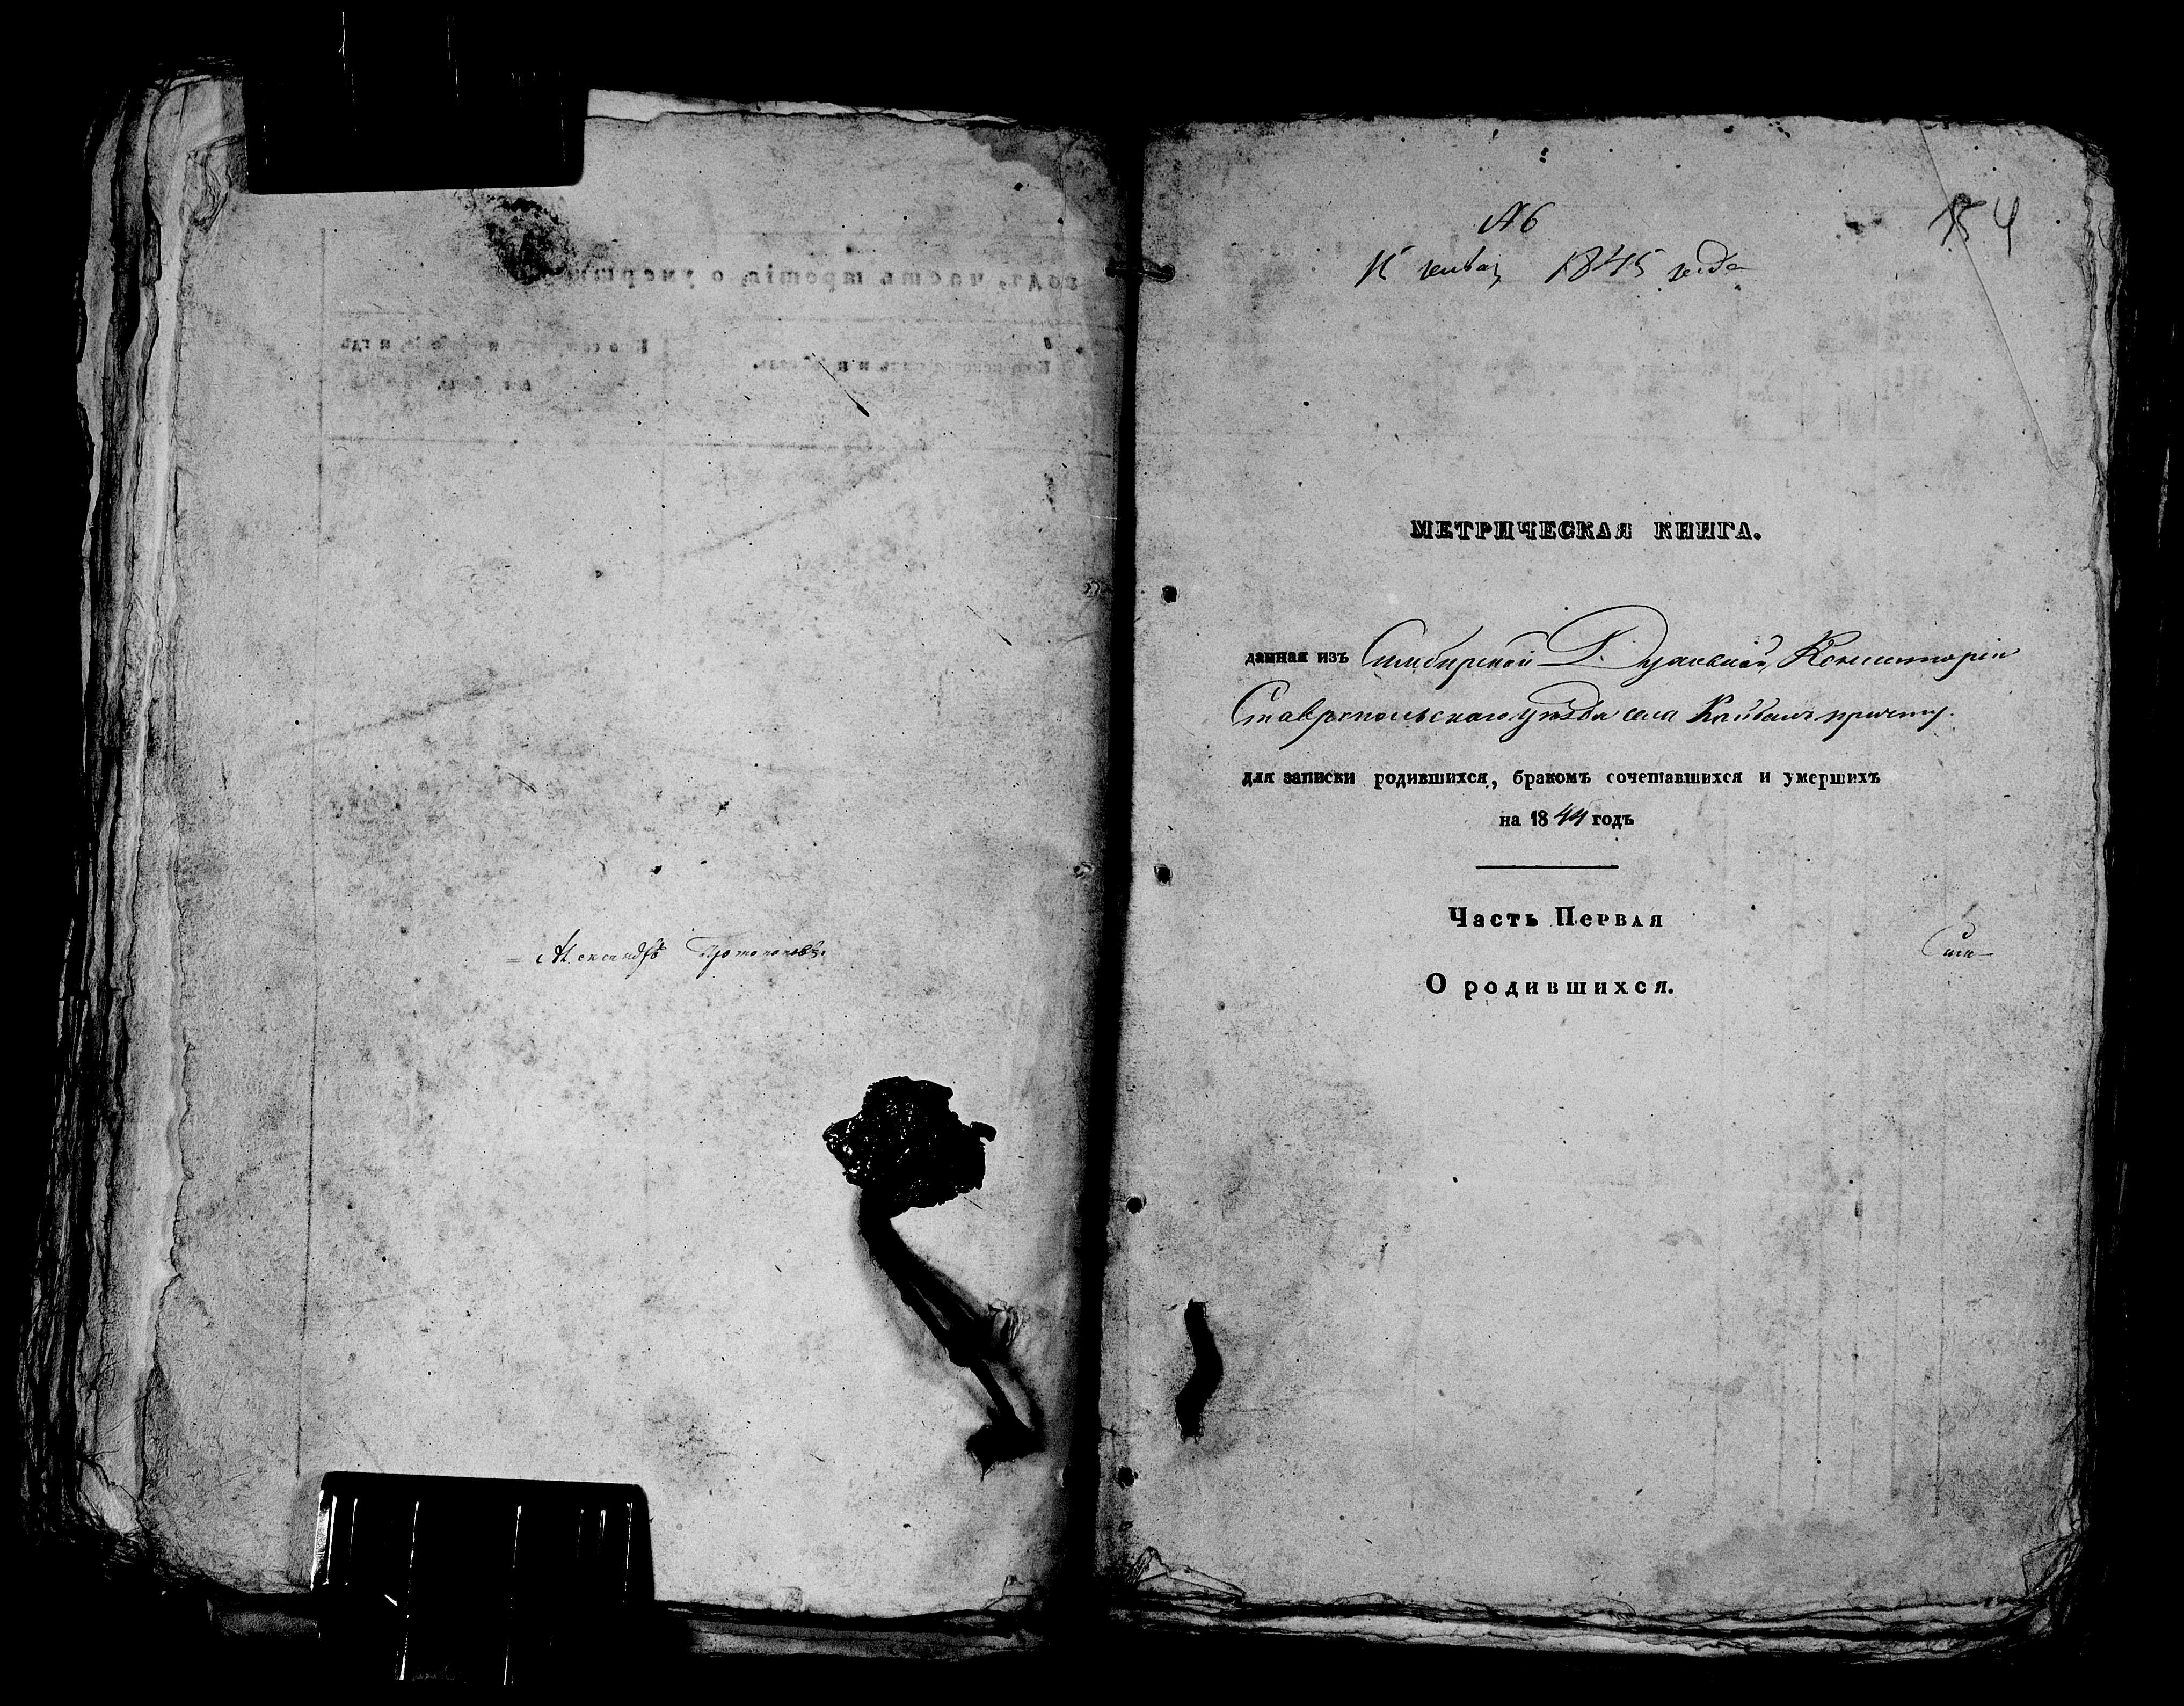 Александръ Протопоповъ.
№ 6
15 генваря 1845 года
154
МЕТРИЧЕСКАЯ КНИГА.
данная изъ Симбирской Д. Духовной Консисторіи
Ставропольскаго уѣзда села причту.
для записки родившихся, бракомъ сочетавшихся и умершихъ
на 1844 годъ
Часть Первая
О родившихся.